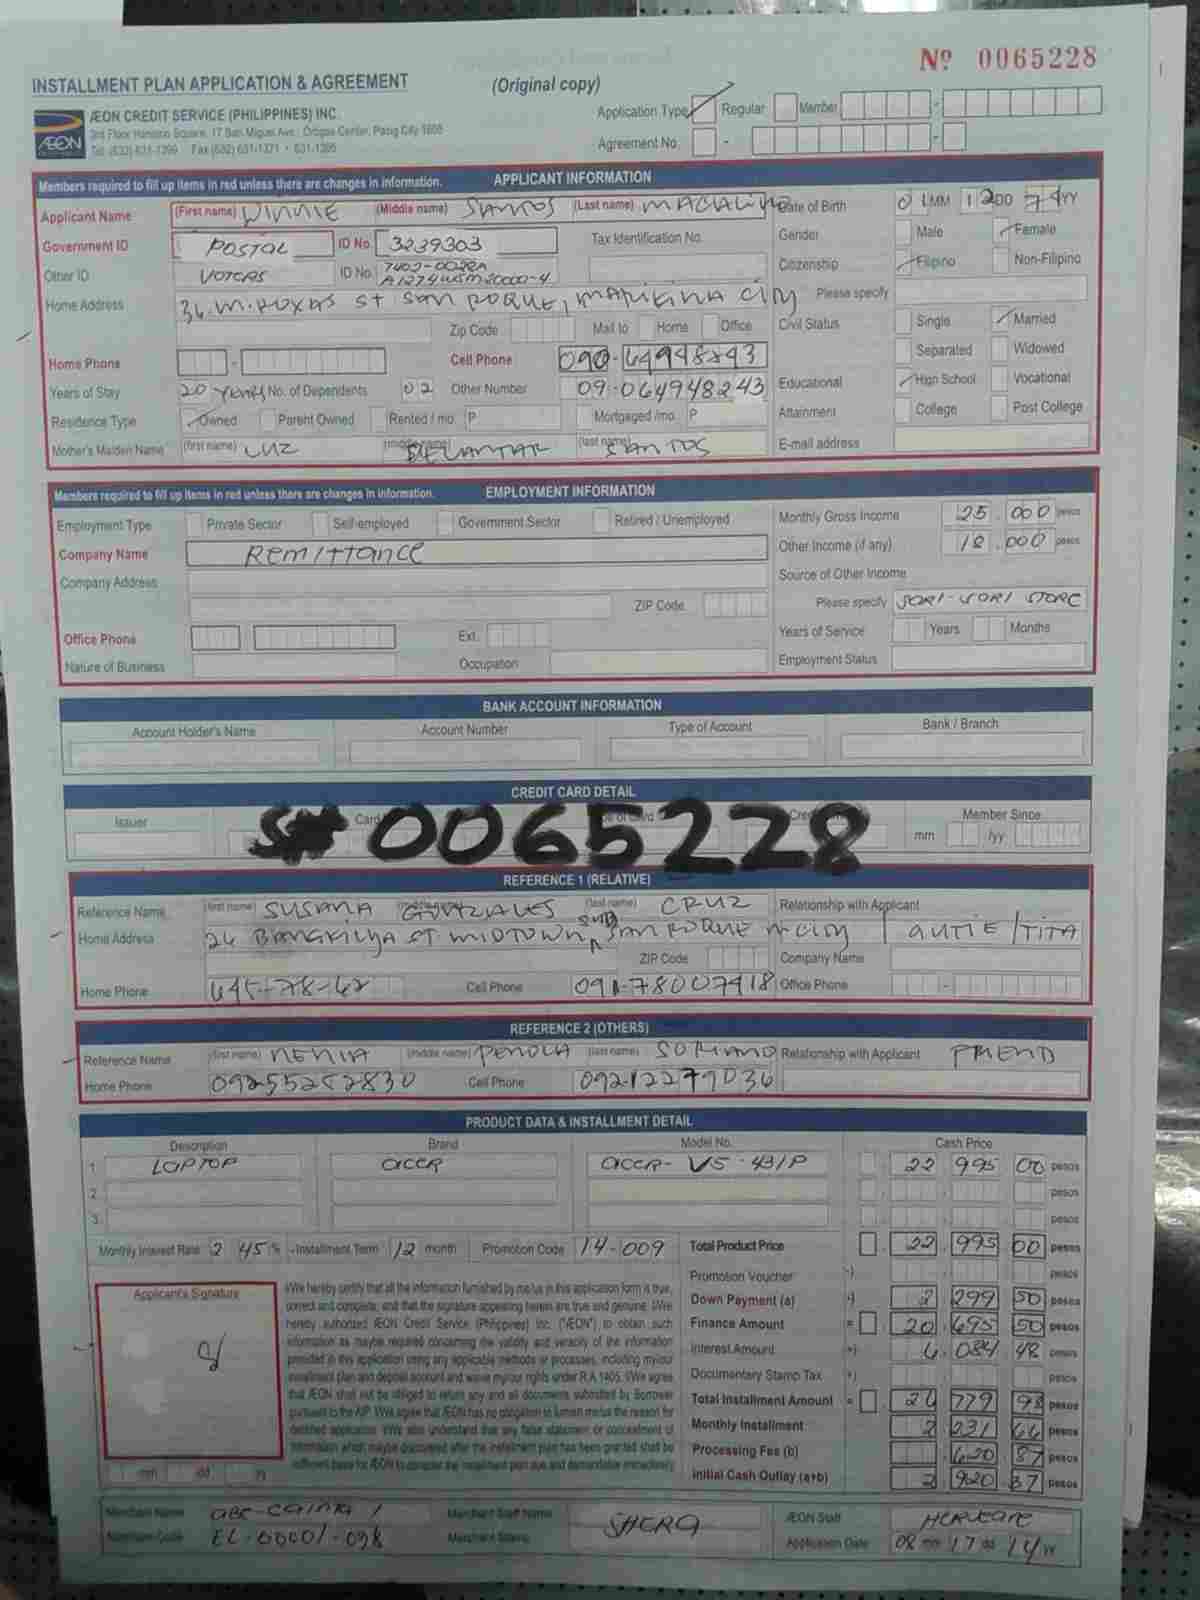 Nº 0065228
INSTALLMENT PLAN APPLICATION & AGREEMENT (Original copy)
ÆON CREDIT SERVICE (PHILIPPINES) INC.
3rd Floor Hanston Square, 17 San Miguel Ave., Ortigas Center, Pasig City 1605
Tel. (632) 631-1399 Fax (632) 631-1371 • 631-1395
ÆON
Application Type Regular Member
Agreement No.
Members required to fill up items in red unless there are changes in information. APPLICANT INFORMATION
Applicant Name (First name) WINNIE (Middle name) SANTOS (Last name) Date of Birth 01 MM 12 DD 74 YY
Government ID POSTAL ID No. 3239303 Tax Identification No. Gender Male Female
Other ID VOTERS ID No. Citizenship Filipino Non-Filipino
Home Address 36 M. ROXAS ST SAN ROQUE, MARIKINA CITY Please specify
Zip Code Mail to Home Office Civil Status Single Married
Home Phone Cell Phone Separated Widowed
Years of Stay 20 YEARS No. of Dependents 02 Other Number 09-064948243 Educational High School Vocational
Residence Type Owned Parent Owned Rented / mo. P Mortgaged /mo. P Attainment College Post College
Mother's Maiden Name (first name) LUZ (middle name) (last name) SANTOS E-mail address
Members required to fill up items in red unless there are changes in information. EMPLOYMENT INFORMATION
Employment Type Private Sector Self-employed Government Sector Retired / Unemployed Monthly Gross Income 25.000 pesos
Company Name REMITTANCE Other Income (if any) 18.000 pesos
Company Address Source of Other Income
ZIP Code Please specify SORI-SORI STORE
Office Phone Ext. Years of Service Years Months
Nature of Business Occupation Employment Status
BANK ACCOUNT INFORMATION
Account Holder's Name Account Number Type of Account Bank / Branch
CREDIT CARD DETAIL
Issuer Member Since
S# 0065228
mm /yy
REFERENCE 1 (RELATIVE)
Reference Name (first name) SUSANA GONZALES (last name) CRUZ Relationship with Applicant
Home Address 26 ST MIDTOWN SUBD SAN ROQUE M CITY AUTIE/TITA
ZIP Code Company Name
Home Phone 645-78-62 Cell Phone 091-78007418 Office Phone
REFERENCE 2 (OTHERS)
Reference Name (first name) NENIA (middle name) (last name) SORIANO Relationship with Applicant FRIEND
Home Phone 09255252830 Cell Phone 09212279036
PRODUCT DATA & INSTALLMENT DETAIL
Description Brand Model No. Cash Price
1. LAPTOP ACER ACER-V5-431P 22 995 00 pesos
2. pesos
3. pesos
Monthly Interest Rate 2 45 % Installment Term 12 month Promotion Code 14-009 Total Product Price 22 995 00 pesos
Promotion Voucher -) pesos
Down Payment (a) -) 2 299 50 pesos
Finance Amount = 20 695 50 pesos
Interest Amount +) 6 084 48 pesos
Documentary Stamp Tax +) pesos
Total Installment Amount = 26 779 98 pesos
Monthly Installment 2 231 66 pesos
Processing Fee (b) 620 87 pesos
Initial Cash Outlay (a+b) 2 920 37 pesos
Applicant's Signature
I/We hereby certify that all the information furnished by me/us in this application form is true,
correct and complete, and that the signature appearing herein are true and genuine. I/We
hereby authorized ÆON Credit Service (Philippines) Inc. ("ÆON") to obtain such
information as maybe required concerning the validity and veracity of the information
provided in this application using any applicable methods or processes, including my/our
installment plan and deposit account and waive my/our rights under R.A 1405. I/We agree
that ÆON shall not be obliged to return any and all documents submitted by Borrower
pursuant to the AIP. I/We agree that ÆON has no obligation to furnish me/us the reason for
declined application. I/We also understand that any false statement or concealment of
information which maybe discovered after the installment plan has been granted shall be
sufficient basis for ÆON to consider the installment plan due and demandable immediately.
mm dd yy
Merchant Name ABE-CAINTA 1 Merchant Staff Name SHERA ÆON Staff
Merchant Code EL-00001-098 Merchant Stamp Application Date 08 mm 17 dd 14 yy